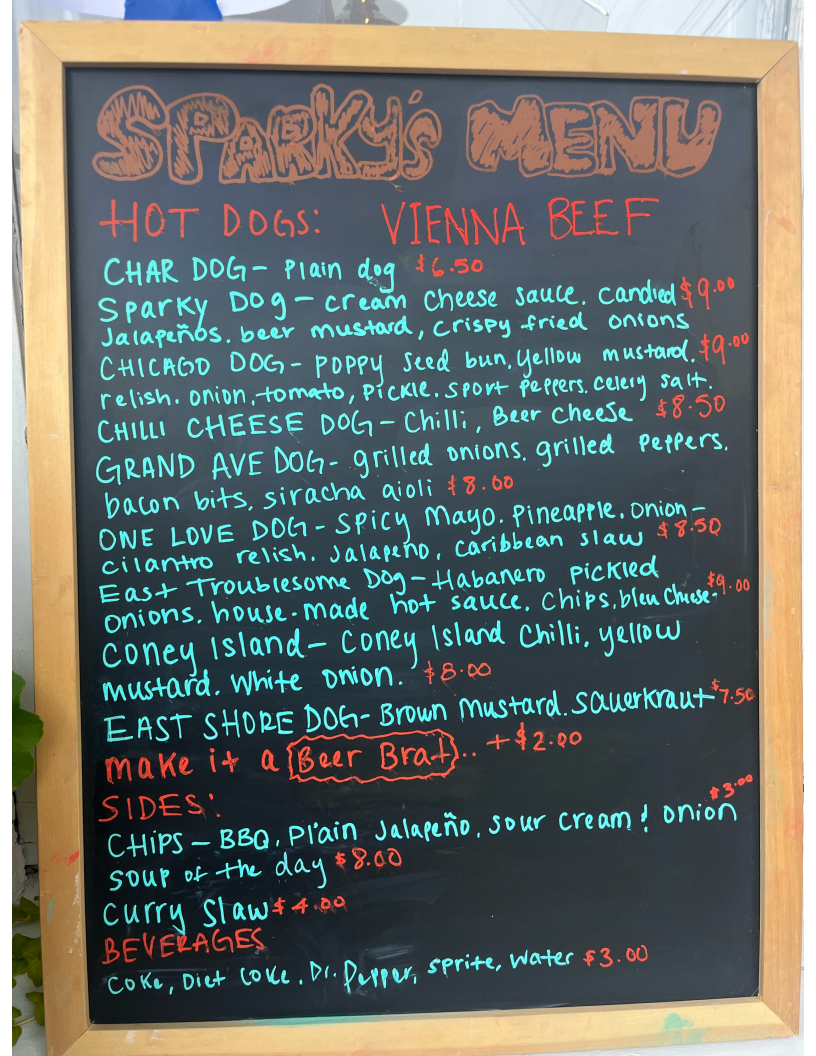 SPARKY'S MENU
HOT DOGS: VIENNA BEEF
CHAR DOG - Plain dog $6.50
Sparky Dog - cream cheese sauce. candied $9.00
Jalapeños. beer mustard, crispy fried onions
CHICAGO DOG - POPPY seed bun, yellow mustard. $9.00
relish. onion, tomato, Pickle. Sport Peppers. celery salt.
CHILLI CHEESE DOG - Chilli, Beer cheese $8.50
GRAND AVE DOG - grilled onions. grilled peppers.
bacon bits, siracha aioli $8.00
ONE LOVE DOG - Spicy Mayo. Pineapple. Onion -
cilantro relish. Jalapeño, caribbean slaw $8.50
East Troublesome Dog - Habanero pickled
onions. house-made hot sauce. Chips. bleu cheese. $9.00
Coney Island - Coney Island Chilli, yellow
mustard. White onion. $8.00
EAST SHORE DOG - Brown Mustard. Sauerkraut $7.50
make it a Beer Brat.. +$2.00
SIDES:
CHIPS - BBQ, Plain Jalapeño, sour cream & onion $3.00
soup of the day $8.00
curry slaw $4.00
BEVERAGES
Coke, Diet Coke. Dr. Pepper, sprite, Water $3.00